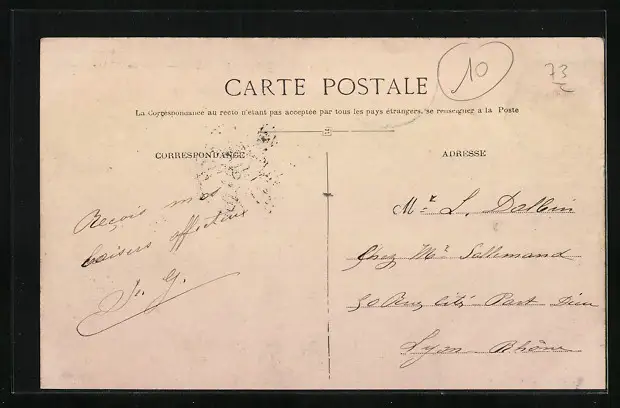 CARTE POSTALE
10
73
La Correspondance au recto n'étant pas acceptée par tous les pays étrangers, se renseigner à la Poste
CORRESPONDANCE
ADRESSE
Reçois mes
baisers affectueux
J. G.
Mr L. Dallin
Chez Mr Sallemand
50 Rue Part Dieu
Lyon Rhône